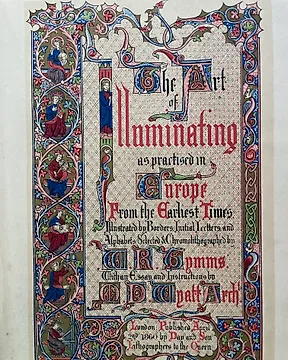 The Art
of
Illuminating
as practised in
Europe
From the Earliest Times
Illustrated by Borders, Initial Letters, and
Alphabets Selected & Chromolithographed by
W. R. Tymms.
With an Essay and Instructions by
M. D. Wyatt Arch!
London Published April
1860 by Day and Son
Lithographers to the Queen